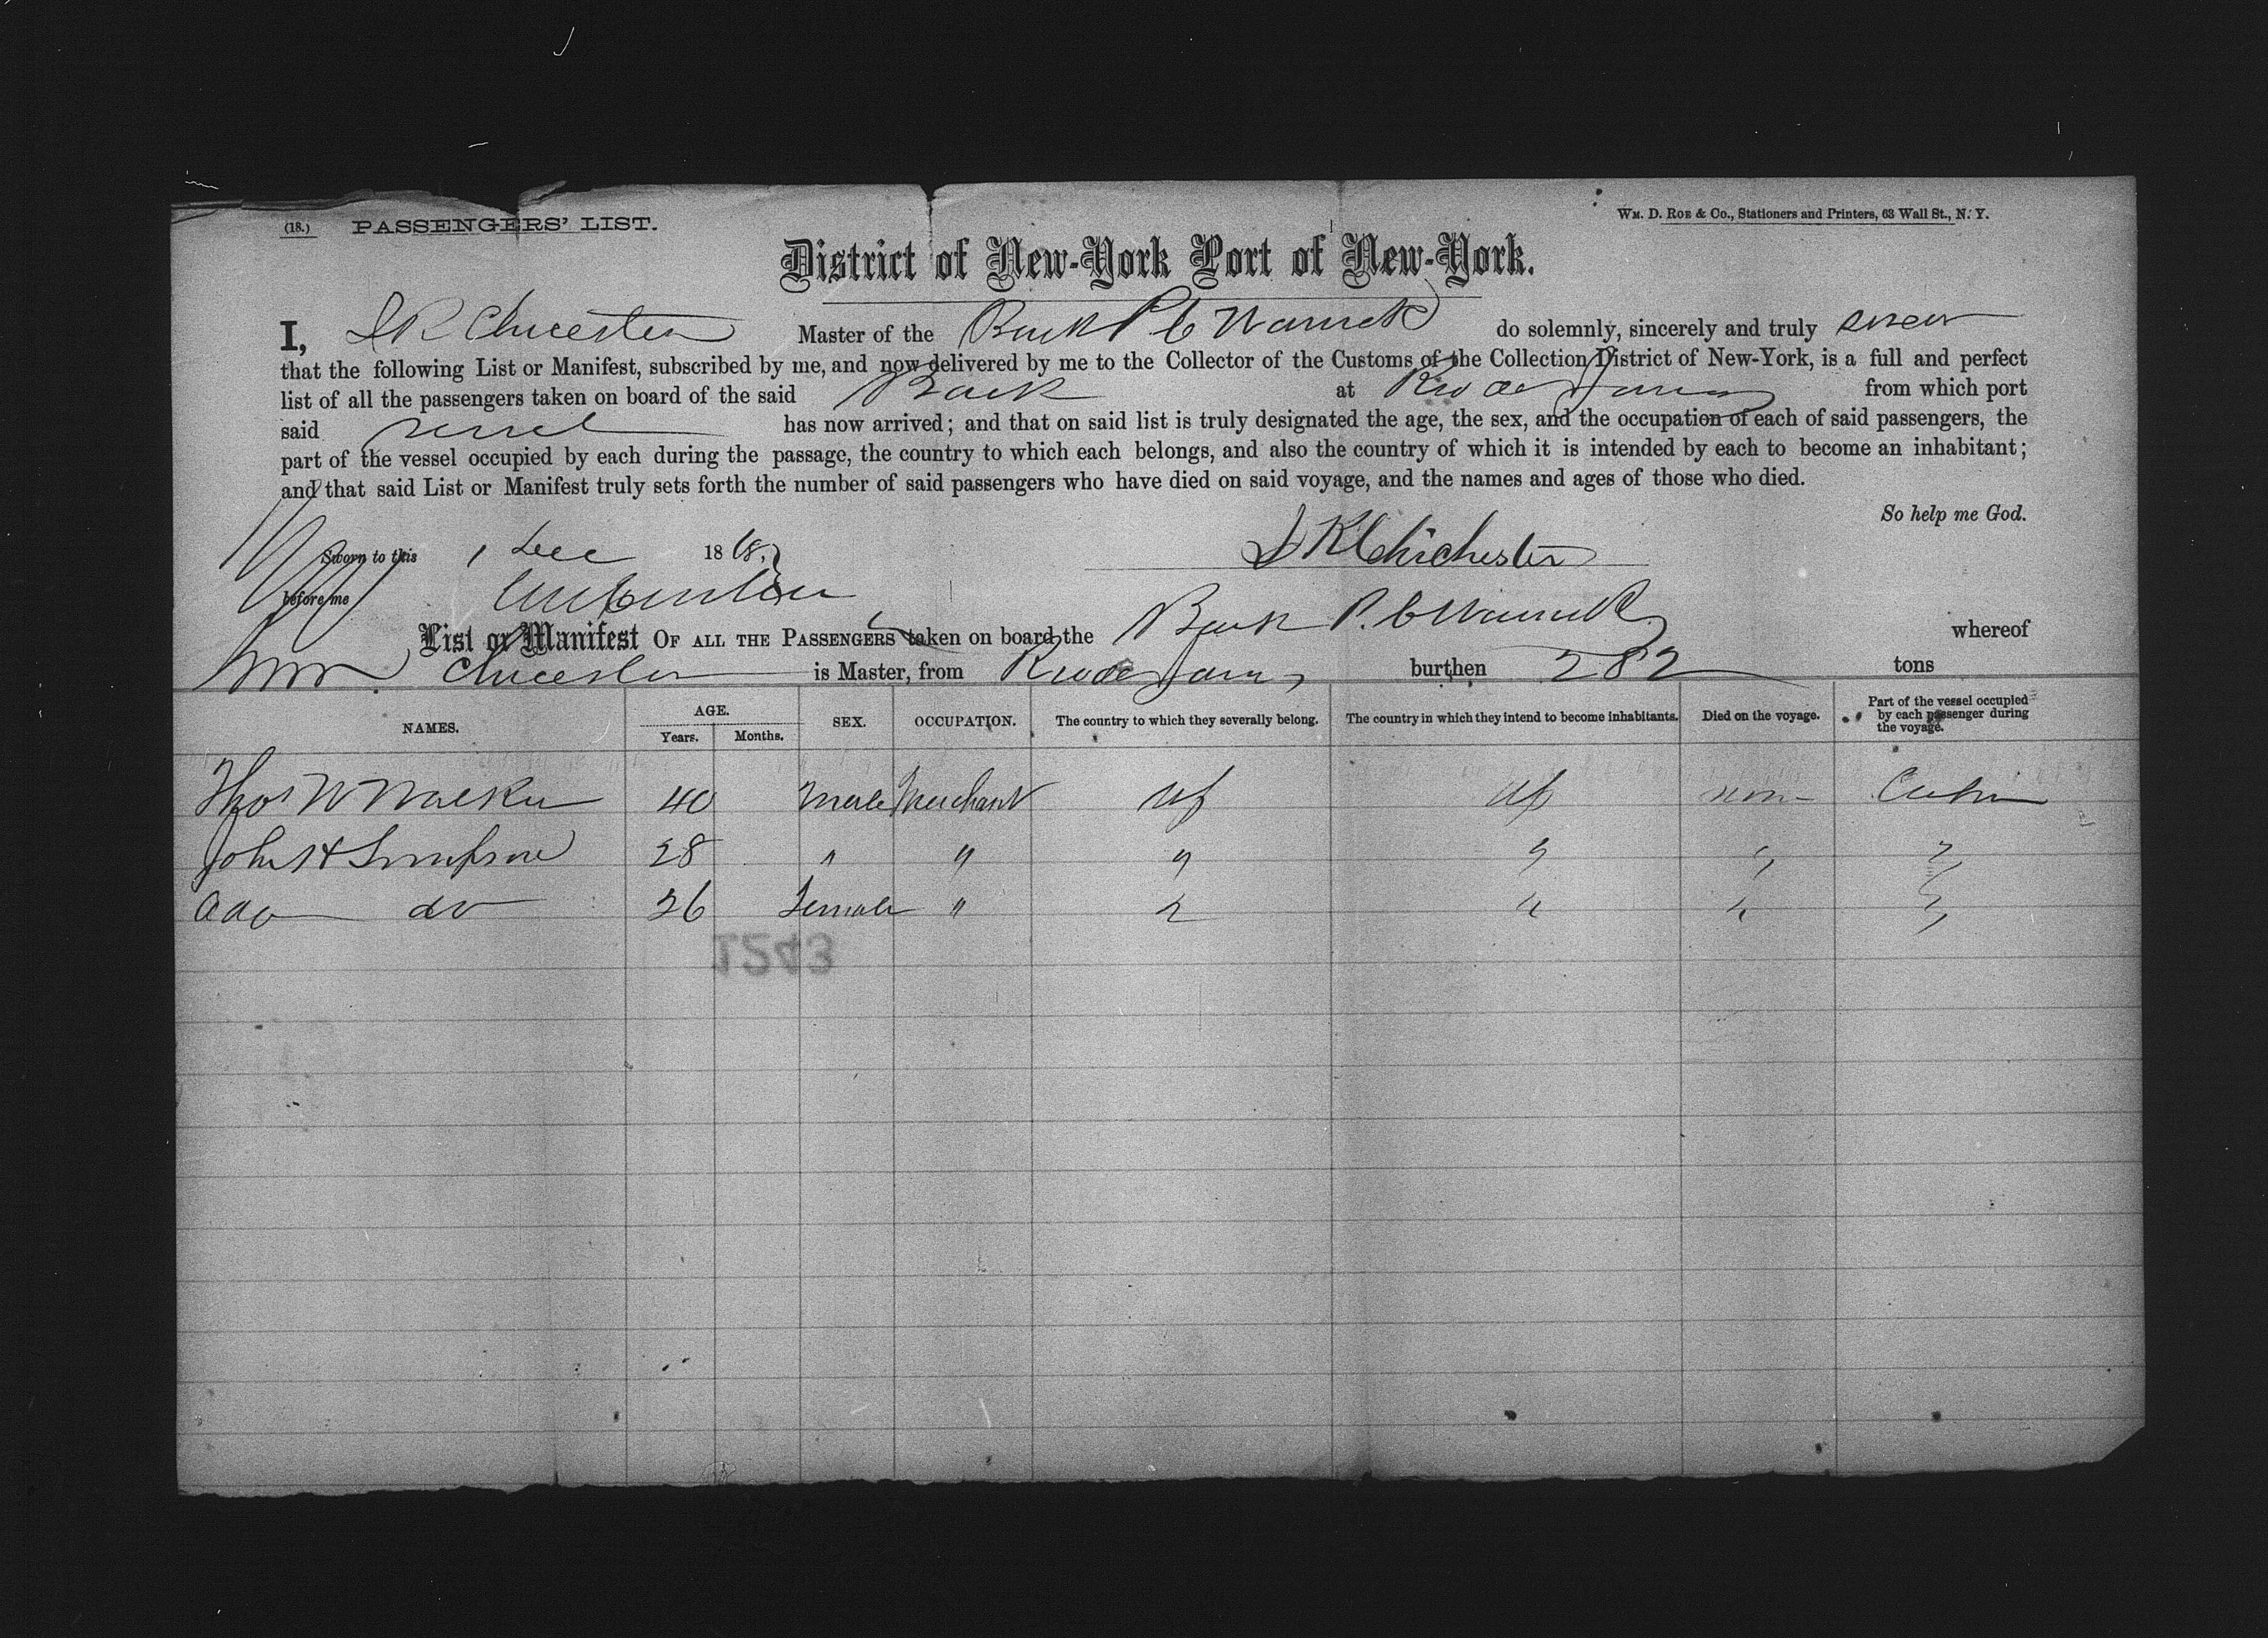 (18.) PASSENGERS' LIST. WM. D. ROE & CO., Stationers and Printers, 63 Wall St., N. Y.
District of New-York Port of New-York.
I, Master of the Bark P C Warwick do solemnly, sincerely and truly swear
that the following List or Manifest, subscribed by me, and now delivered by me to the Collector of the Customs of the Collection District of New-York, is a full and perfect
list of all the passengers taken on board of the said Bark at Rio de Janeiro from which port
said vessel has now arrived; and that on said list is truly designated the age, the sex, and the occupation of each of said passengers, the
part of the vessel occupied by each during the passage, the country to which each belongs, and also the country of which it is intended by each to become an inhabitant;
and that said List or Manifest truly sets forth the number of said passengers who have died on said voyage, and the names and ages of those who died.
So help me God.
Sworn to this 1 Dec 1868. Chichester
before me
List or Manifest OF ALL THE PASSENGERS taken on board the Bark P. C Warwick whereof
is Master, from Rio de Janeiro burthen 282 tons
NAMES. AGE. Years. Months. SEX. OCCUPATION. The country to which they severally belong. The country in which they intend to become inhabitants. Died on the voyage. Part of the vessel occupied by each passenger during the voyage.
Thos W Walker 40 Male Merchant US US none Cabin
John H Simpson 28 " " " " " "
Ada do 26 Female " " " " "
1243